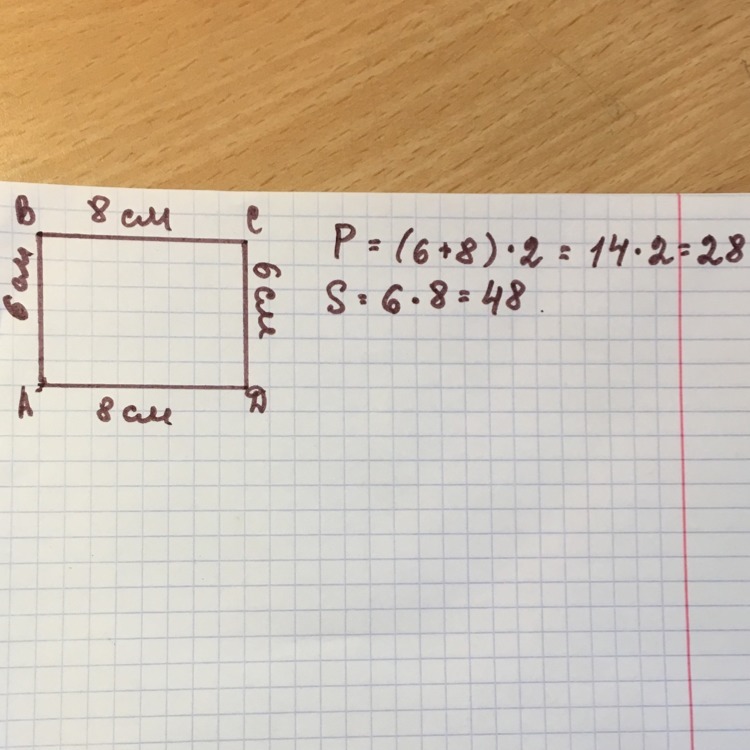 B 8 см C
6 см
6 см
A 8 см D
P = (6+8)·2 = 14·2=28
S = 6·8=48